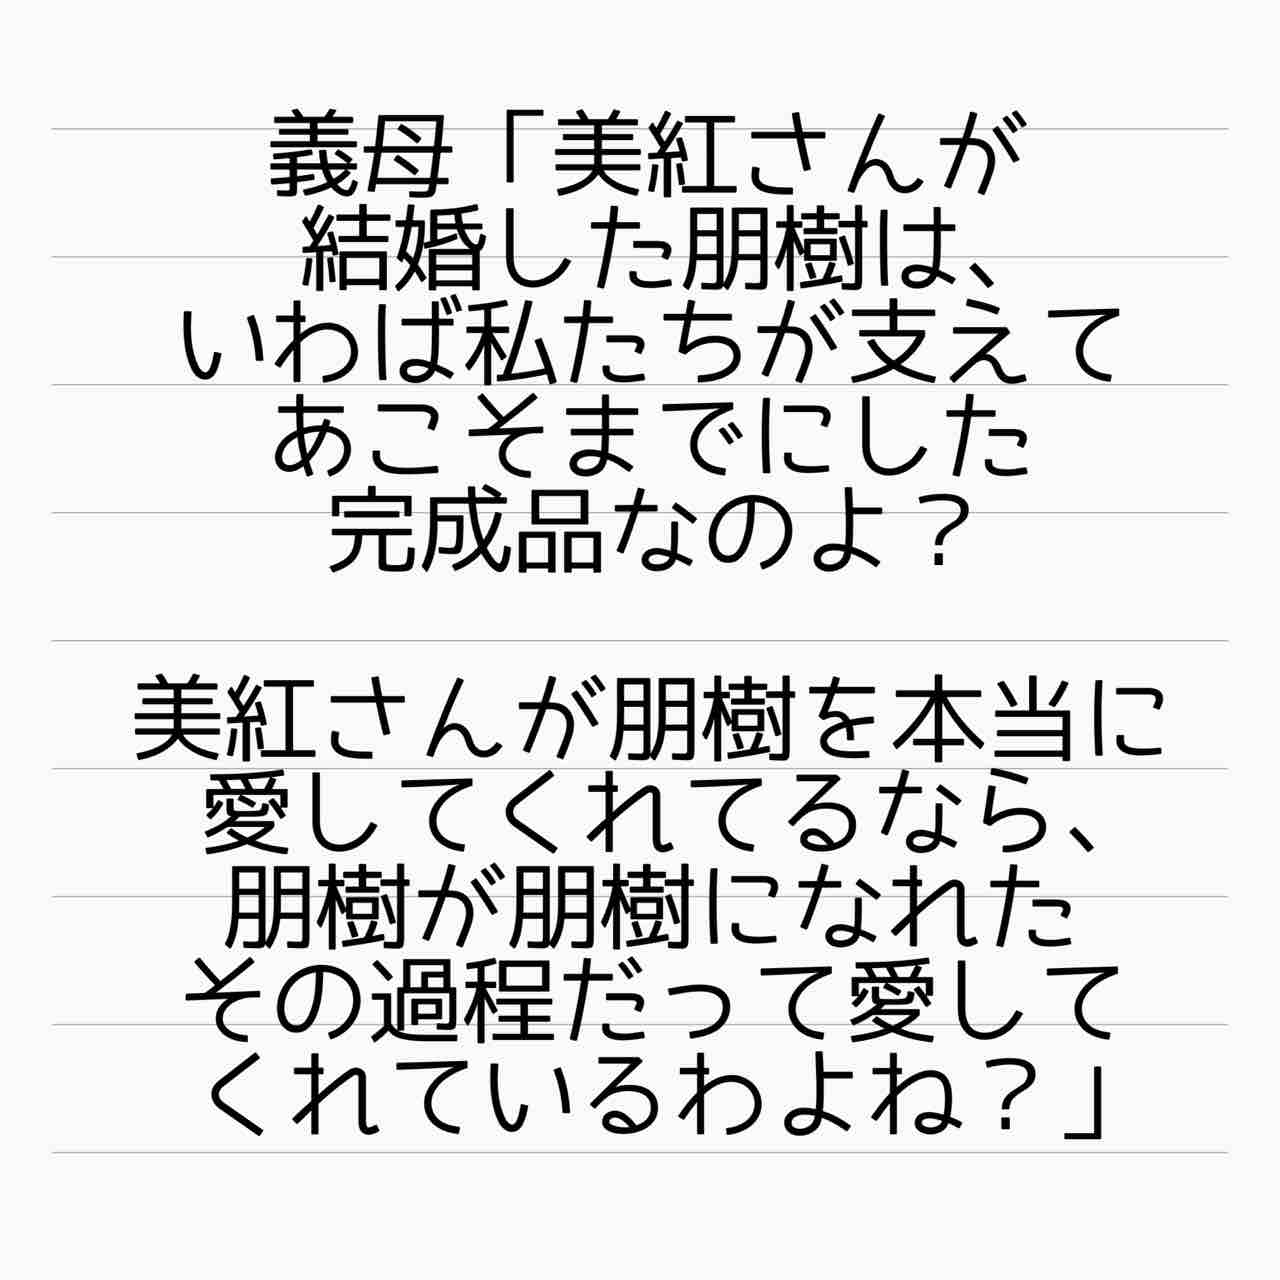 義母「美紅さんが
結婚した朋樹は、
いわば私たちが支えて
あこそまでにした
完成品なのよ？
美紅さんが朋樹を本当に
愛してくれてるなら、
朋樹が朋樹になれた
その過程だって愛して
くれているわよね？」